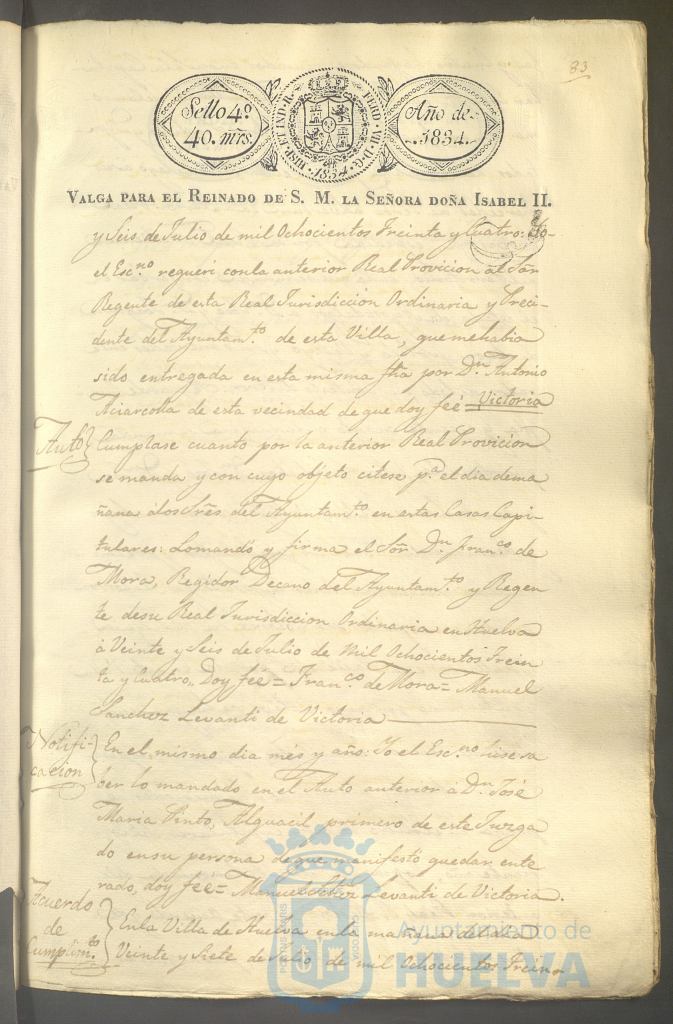 83
Sello 4º
40. mrs.
HISP. ET IND. R. FERD. VII. D. G.
.1834.
Año de
.1834.
VALGA PARA EL REINADO DE S. M. LA SEÑORA DOÑA ISABEL II.
y Seis de Julio de mil Ochocientos Treinta y Cuatro: Yo
el Esc.no requeri con la anterior Real Provicion al Sor
Regente de esta Real Jurisdiccion Ordinaria y Preci-
dente del Ayuntam.to de esta Villa, que me habia
sido entregada en esta misma fha por Dn. Antonio
de esta vecindad de que doy feé = Victoria
Auto} Cumplase cuanto por la anterior Real Provicion
se manda y con cuyo objeto citese p.a el dia de ma-
ñana á los Sres. del Ayuntam.to en estas Casas Capi-
tulares: Lo mandó y firma el Sor. Dn. Fran.co de
Mora, Regidor Decano del Ayuntam.to y Regen-
te de su Real Jurisdiccion Ordinaria en Huelva
á Veinte y Seis de Julio de Mil Ochocientos Trein
ta y Cuatro,, Doy feé = Fran.co de Mora = Manuel
Sanchez Levanti de Victoria
Notifi-
cacion} En el mismo dia més y año: Yo el Esc.no hise sa
ber lo mandado en el Auto anterior á Dn. José
Maria Pinto, Alguacil primero de este Juzga
do en su persona de que manifestó quedar ente
rado, doy feé = Manuel Levanti de Victoria.
Acuerdo
de
Cumplim.to} En la Villa de Huelva en la mañana del dia
Veinte y Siete de Julio de mil Ochocientos Trein-
Ayuntamiento de
HUELVA